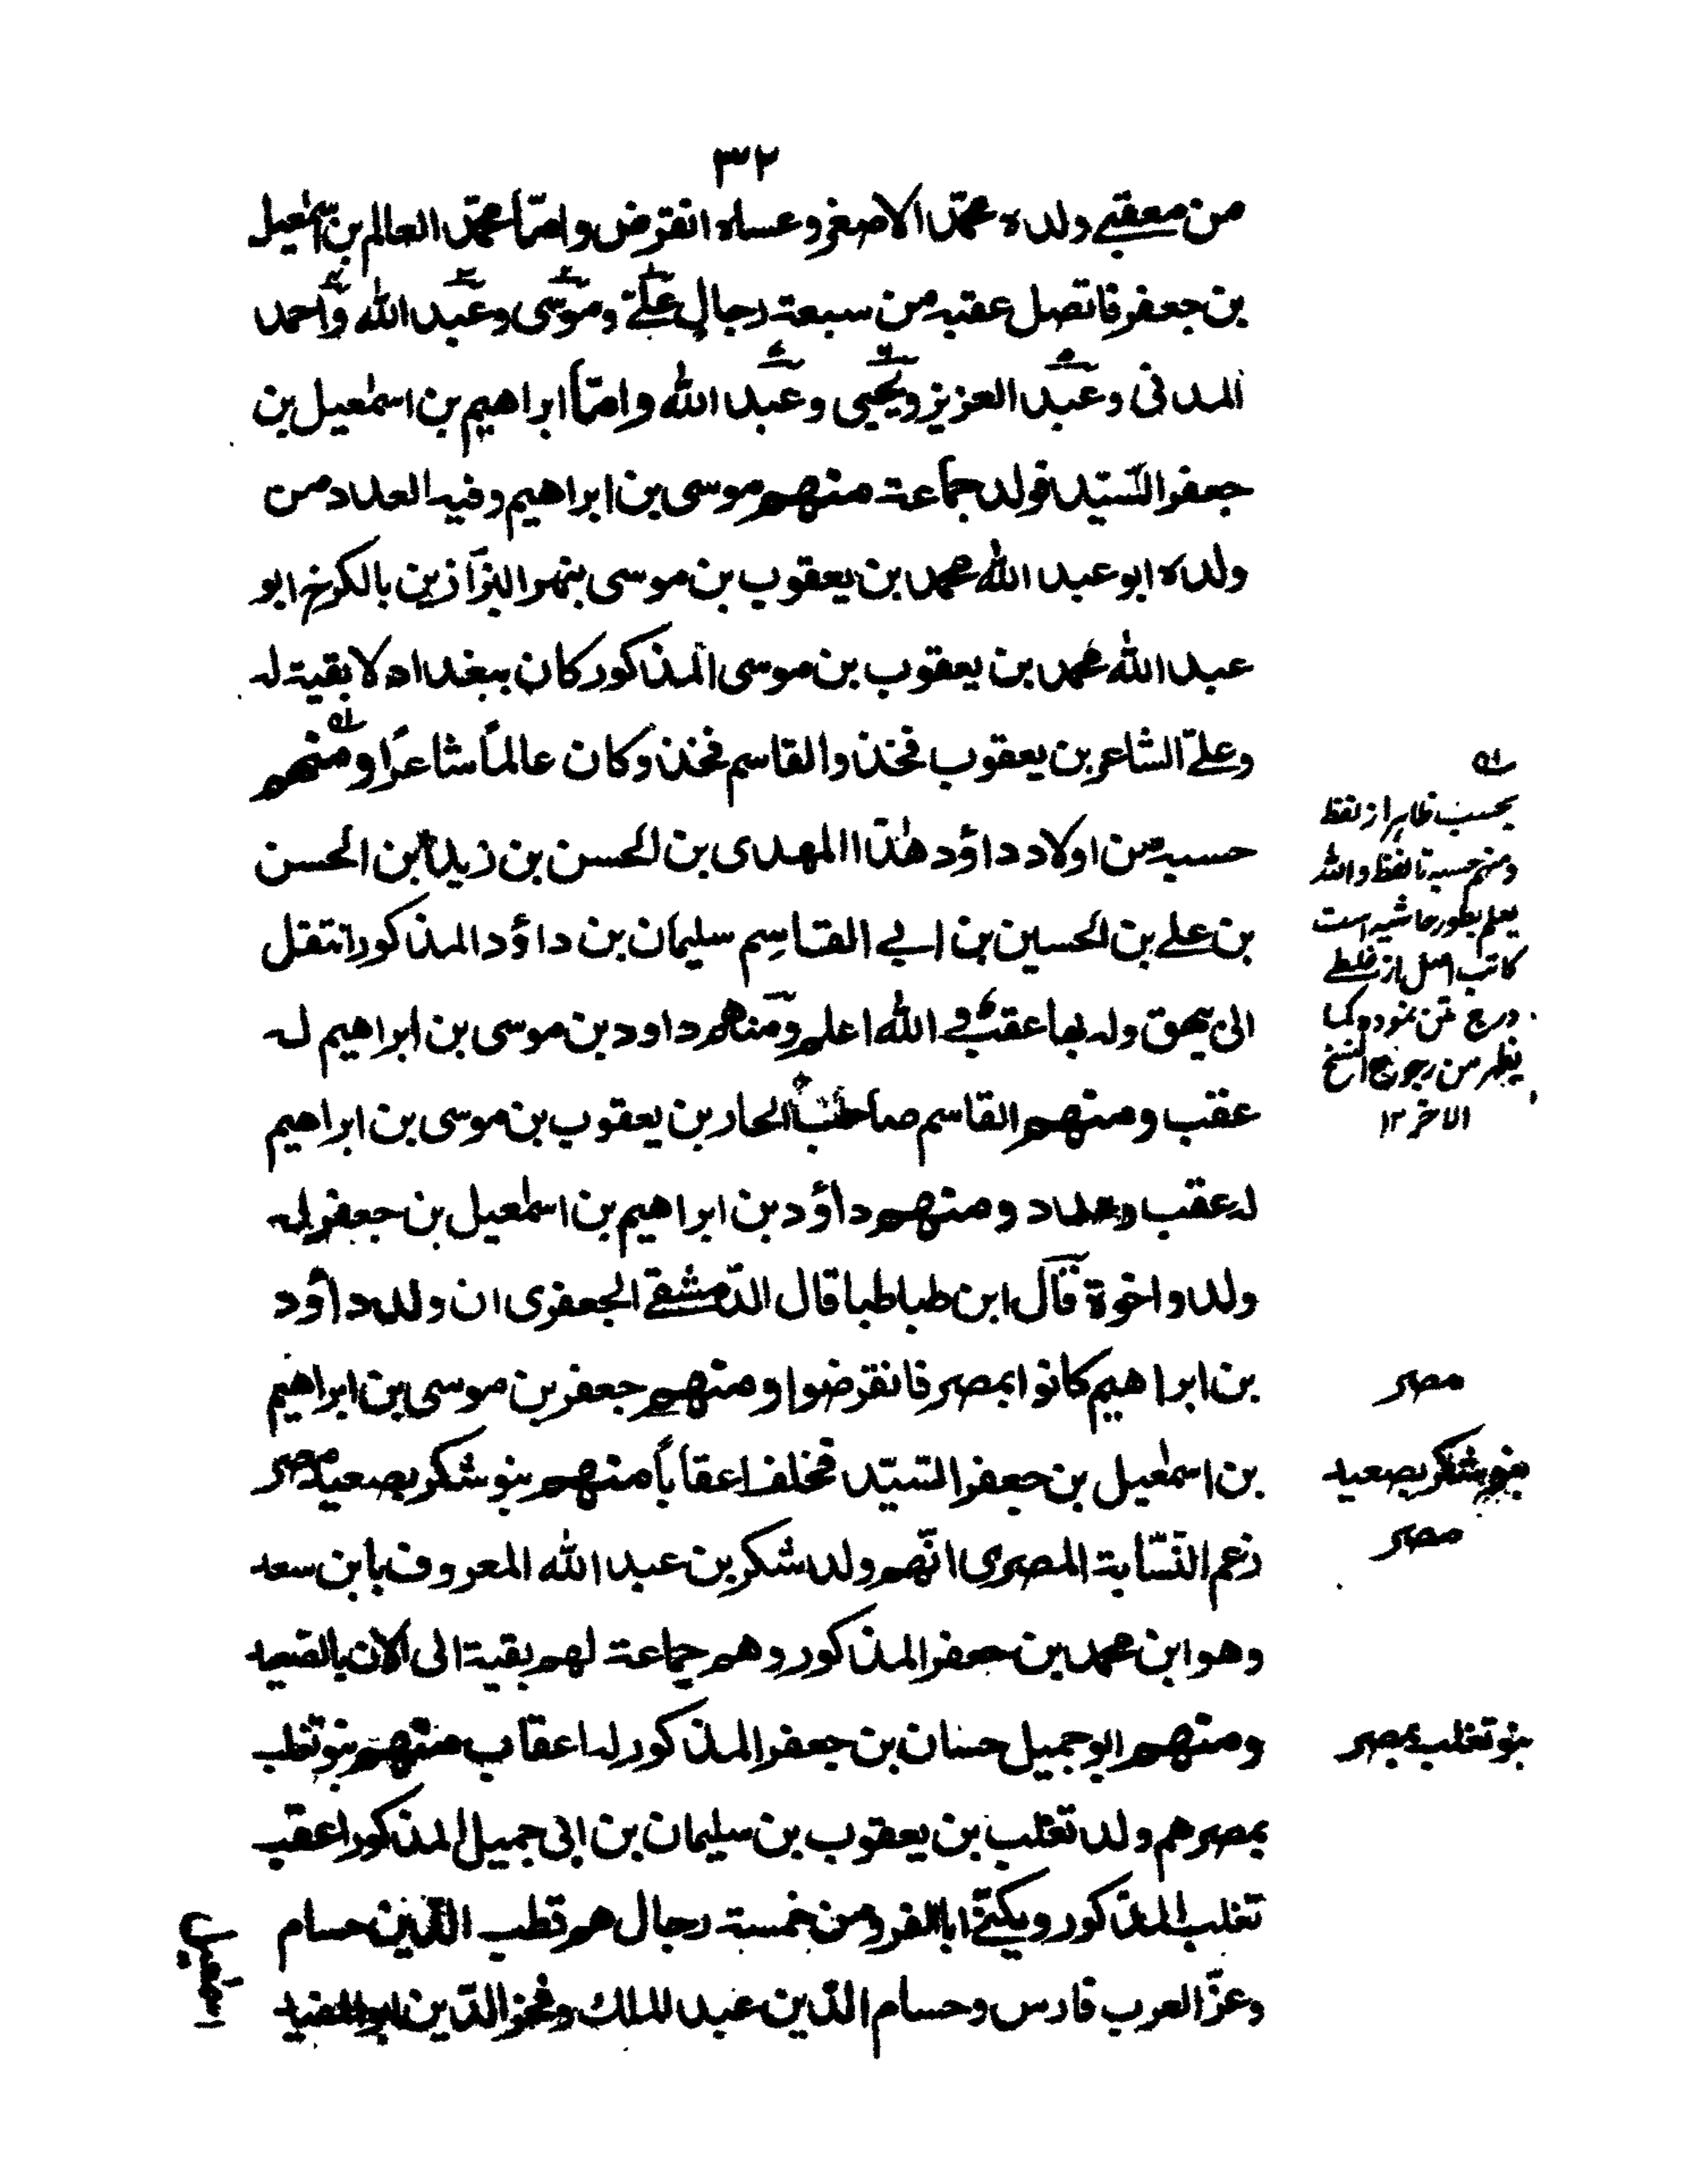 ٣٢
من معقبے ولده محمّد الاصغر وعساه انقرض وامّا محمّد العالم بن اسمٰعيل
بن جعفر فاتصل عقبه من سبعة رجال علےّ وموسى وعبد الله واحمد
المدنى وعبد العزيز ويحيى وعبد الله وامّا ابراهيم بن اسمٰعيل بن
جعفر السّيّد فولد جماعة منهم موسى بن ابراهيم وفيه العدد من
ولده ابو عبد الله محمد بن يعقوب بن موسى بنهر البزّازين بالكرخ ابو
عبد الله محمد بن يعقوب بن موسى المذكور كان ببغداد لا بقية له
وعلےّ الشاعر بن يعقوب فخذ والقاسم فخذ وكان عالماً شاعراً ومنهم
حسبه من اولاد داؤد هٰذا المهدى بن الحسن بن زيد بن الحسن
بن علے بن الحسين بن ابے القاسِم سليمان بن داؤد المذكور انتقل
الى بيهق وله بها عقب و الله اعلم ومنهم داود بن موسى بن ابراهيم له
عقب ومنهم القاسم صاحب الحار بن يعقوب بن موسى بن ابراهيم
له عقب وعدد ومنهم داؤد بن ابراهيم بن اسمٰعيل بن جعفر له
ولد واخوة قال ابن طباطبا قال الدّمشقے الجعفرى ان ولد داؤد
بن ابراهيم كانوا بمصر فانقرضوا ومنهم جعفر بن موسى بن ابراهيم
بن اسمٰعيل بن جعفر السّيّد فخلف اعقاباً منهم بنو شكر بصعيد مصر
زعم النسّابة المصرى انّهم ولد شكر بن عبد الله المعروف بابن سعد
وهو ابن محمد بن جعفر المذكور وهم جماعة لهم بقية الى الان بالصّعيد
ومنهم ابو جميل حسان بن جعفر المذكور له اعقاب منهم بنو تغلب
بمصر هم ولد تغلب بن يعقوب بن سليمان بن ابى جميل المذكور اعقب
تغلب المذكور ويكنےّ ابا من خمسة رجال هم قطب الدّين حسام
وعزّ العرب فارس وحسام الدّين عبد الملك وفخر الدّين
بحسب ظاهر از لفظ
ومنهم حسبه تا لفظ والله
يعلم بطور حاشيه است
كاتب اصل از غلطے
درج متن نموده كما
يظهر من رجوع النسخ
الاخر ١٢
مصر
بنو شكر بصعيد
مصر
بنو تغلب بمصر